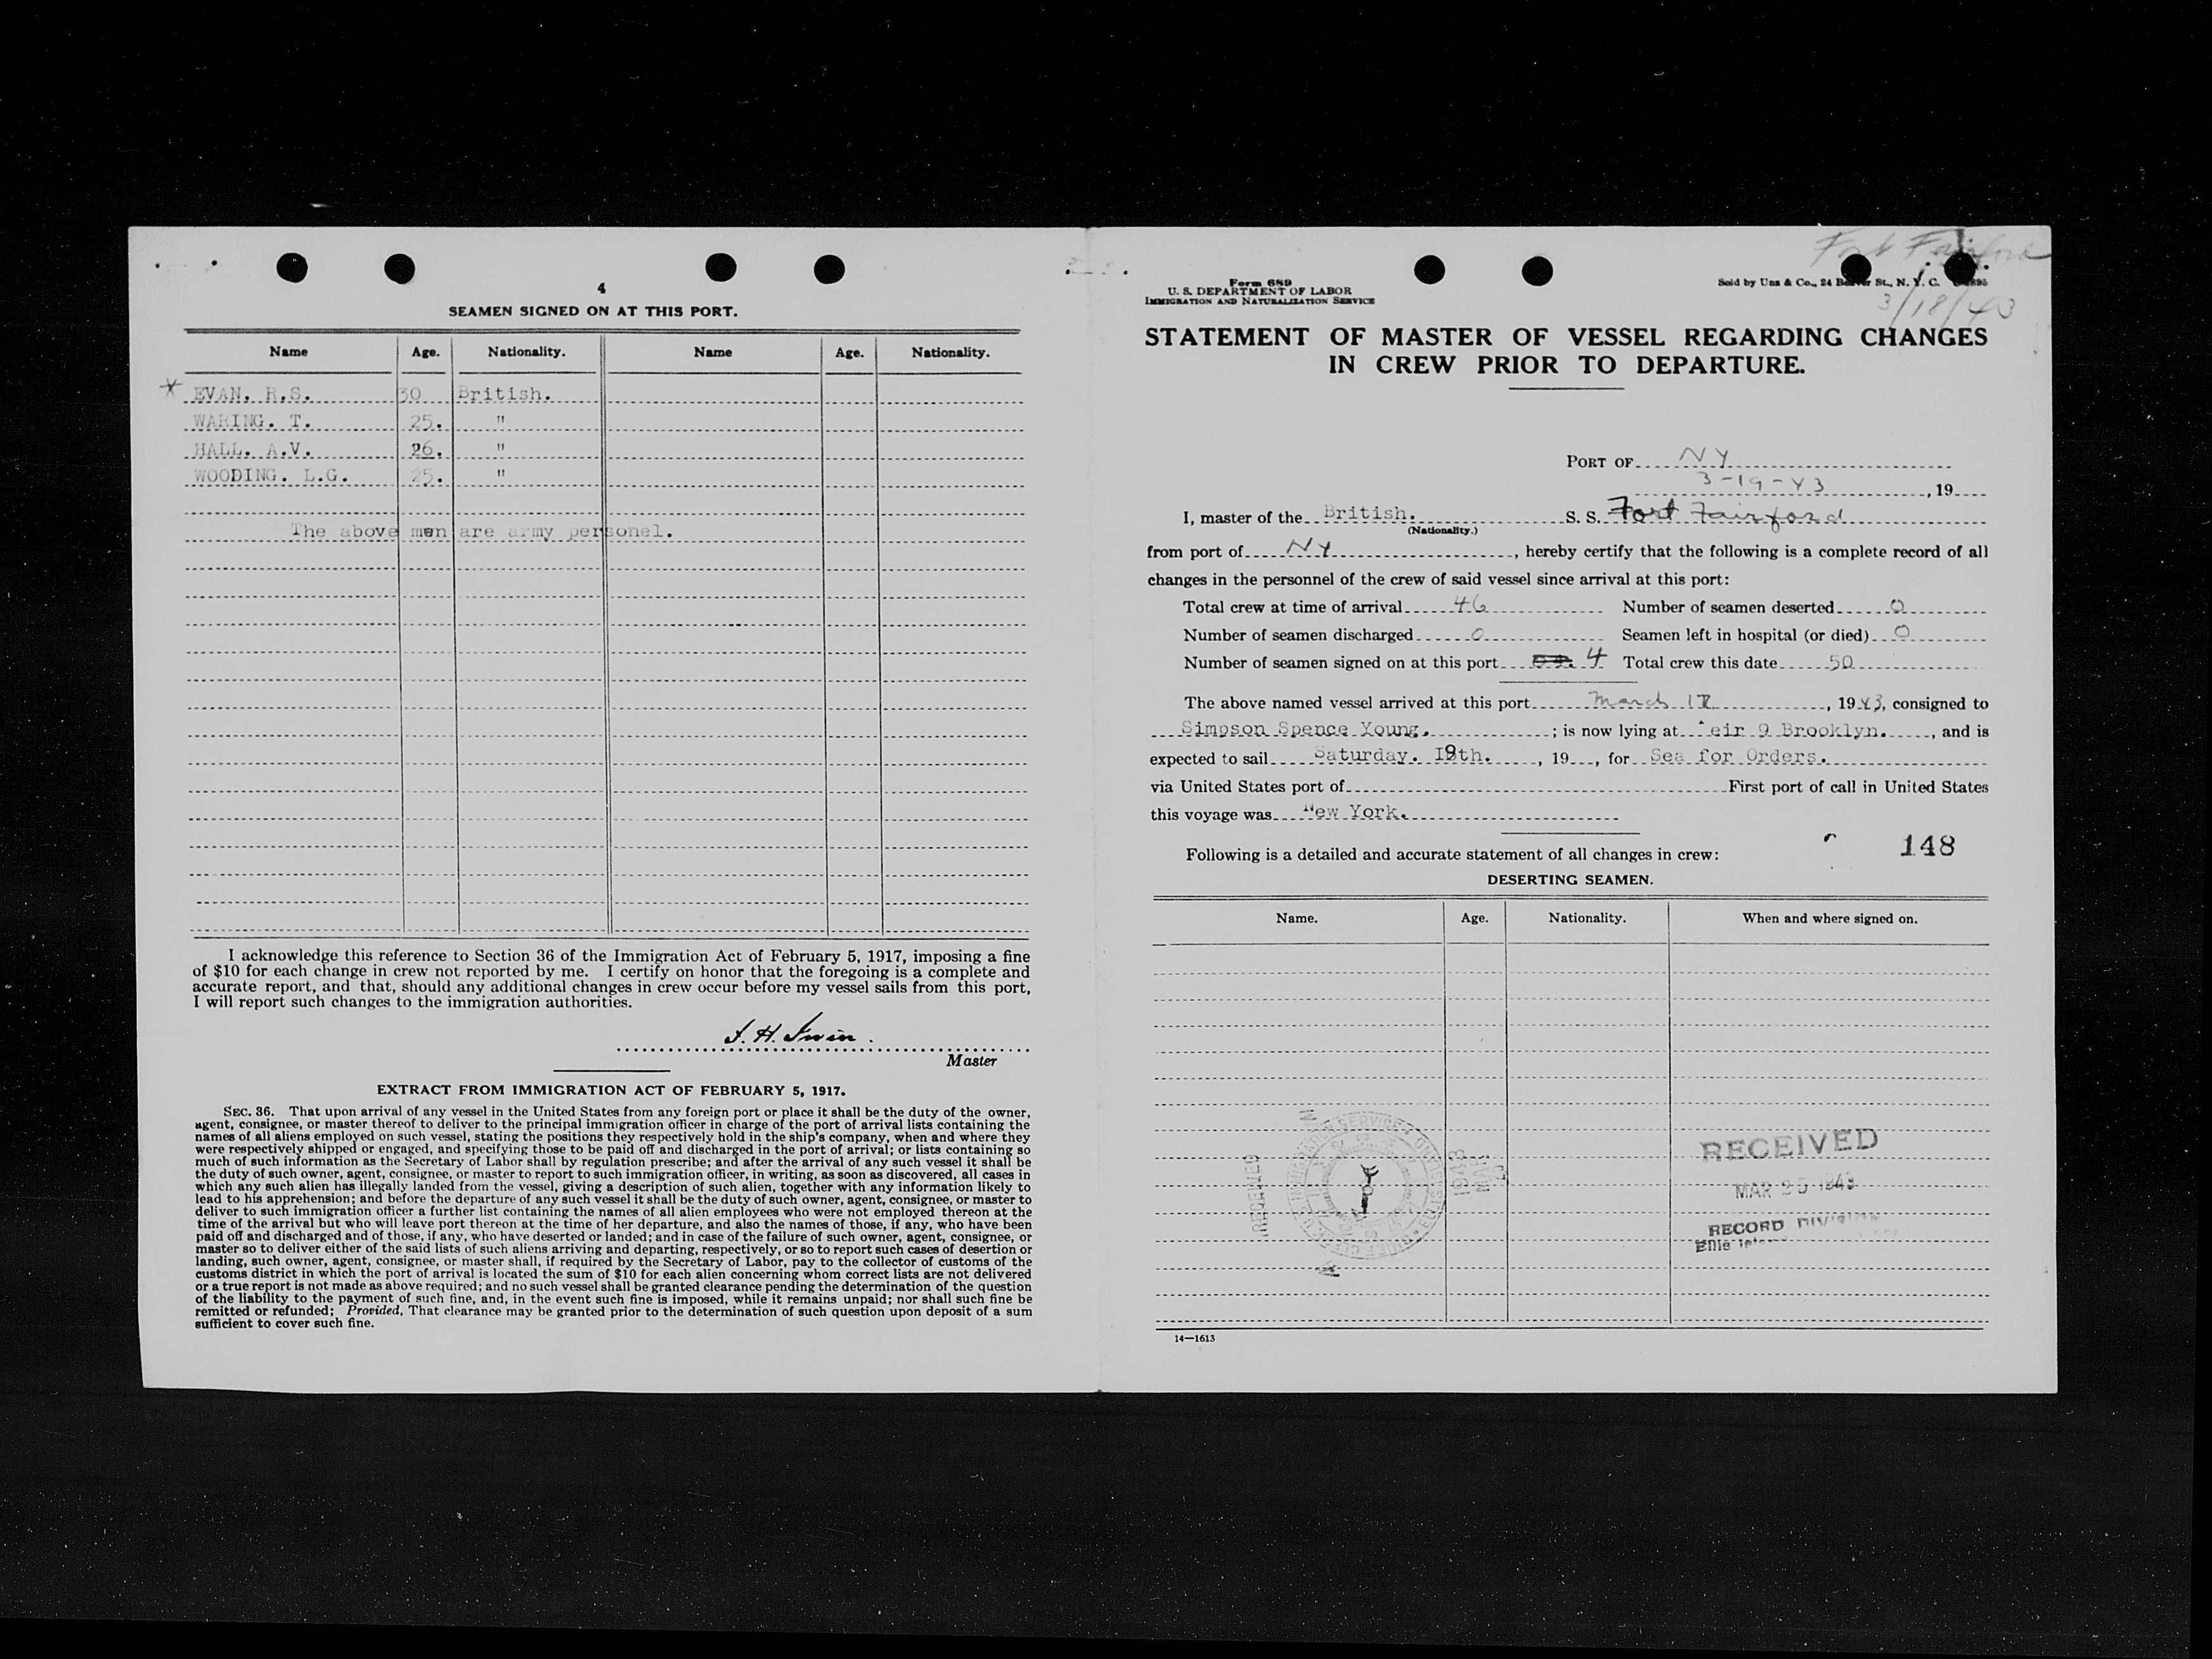 4
SEAMEN SIGNED ON AT THIS PORT.
Name Age. Nationality. Name Age. Nationality.
* EVAN. R.S. 30 British.
WARING. T. 25. "
HALL. A.V. 26. "
WOODING. L.G. 25. "
The above men are army personel.
I acknowledge this reference to Section 36 of the Immigration Act of February 5, 1917, imposing a fine
of $10 for each change in crew not reported by me. I certify on honor that the foregoing is a complete and
accurate report, and that, should any additional changes in crew occur before my vessel sails from this port,
I will report such changes to the immigration authorities.
Master
EXTRACT FROM IMMIGRATION ACT OF FEBRUARY 5, 1917.
SEC. 36. That upon arrival of any vessel in the United States from any foreign port or place it shall be the duty of the owner,
agent, consignee, or master thereof to deliver to the principal immigration officer in charge of the port of arrival lists containing the
names of all aliens employed on such vessel, stating the positions they respectively hold in the ship's company, when and where they
were respectively shipped or engaged, and specifying those to be paid off and discharged in the port of arrival; or lists containing so
much of such information as the Secretary of Labor shall by regulation prescribe; and after the arrival of any such vessel it shall be
the duty of such owner, agent, consignee, or master to report to such immigration officer, in writing, as soon as discovered, all cases in
which any such alien has illegally landed from the vessel, giving a description of such alien, together with any information likely to
lead to his apprehension; and before the departure of any such vessel it shall be the duty of such owner, agent, consignee, or master to
deliver to such immigration officer a further list containing the names of all alien employees who were not employed thereon at the
time of the arrival but who will leave port thereon at the time of her departure, and also the names of those, if any, who have been
paid off and discharged and of those, if any, who have deserted or landed; and in case of the failure of such owner, agent, consignee, or
master so to deliver either of the said lists of such aliens arriving and departing, respectively, or so to report such cases of desertion or
landing, such owner, agent, consignee, or master shall, if required by the Secretary of Labor, pay to the collector of customs of the
customs district in which the port of arrival is located the sum of $10 for each alien concerning whom correct lists are not delivered
or a true report is not made as above required; and no such vessel shall be granted clearance pending the determination of the question
of the liability to the payment of such fine, and, in the event such fine is imposed, while it remains unpaid; nor shall such fine be
remitted or refunded; Provided, That clearance may be granted prior to the determination of such question upon deposit of a sum
sufficient to cover such fine.
Fort Fairford
Form 689
U. S. DEPARTMENT OF LABOR
IMMIGRATION AND NATURALIZATION SERVICE
Sold by Unz & Co., 24 Beaver St., N. Y. C.
3/18/43
STATEMENT OF MASTER OF VESSEL REGARDING CHANGES
IN CREW PRIOR TO DEPARTURE.
PORT OF NY
3-19-43, 19
I, master of the British. S. S. Fort Fairford
(Nationality.)
from port of NY, hereby certify that the following is a complete record of all
changes in the personnel of the crew of said vessel since arrival at this port:
Total crew at time of arrival 46 Number of seamen deserted 0
Number of seamen discharged 0 Seamen left in hospital (or died) 0
Number of seamen signed on at this port 4 Total crew this date 50
The above named vessel arrived at this port March , 1943, consigned to
Simpson Spence Young. ; is now lying at eir 9 Brooklyn. , and is
expected to sail Saturday. 19th. , 19 , for Sea for Orders.
via United States port of First port of call in United States
this voyage was New York.
Following is a detailed and accurate statement of all changes in crew:
148
DESERTING SEAMEN.
Name. Age. Nationality. When and where signed on.
RECEIVED
RECEIVED
MAR 25 1943
RECORD DIVISION
Ellis
14—1613